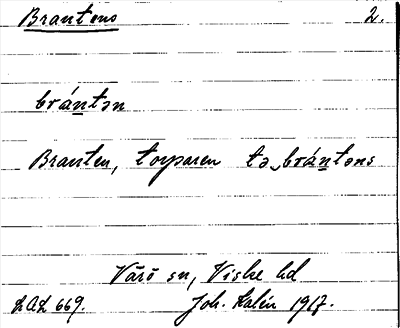 Brantens 2.
brántən
Branten, torparen tə‿brántəns
Värö sn, Viske hd
LAL 669. Joh. Kalén 1917.